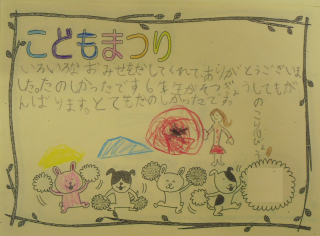 こどもまつり
いろいろな おみせをだしてくれてありがとうございま
した。たのしかったです 6年生がそつぎょうしてもが
んばります。とてもたのしかったです。